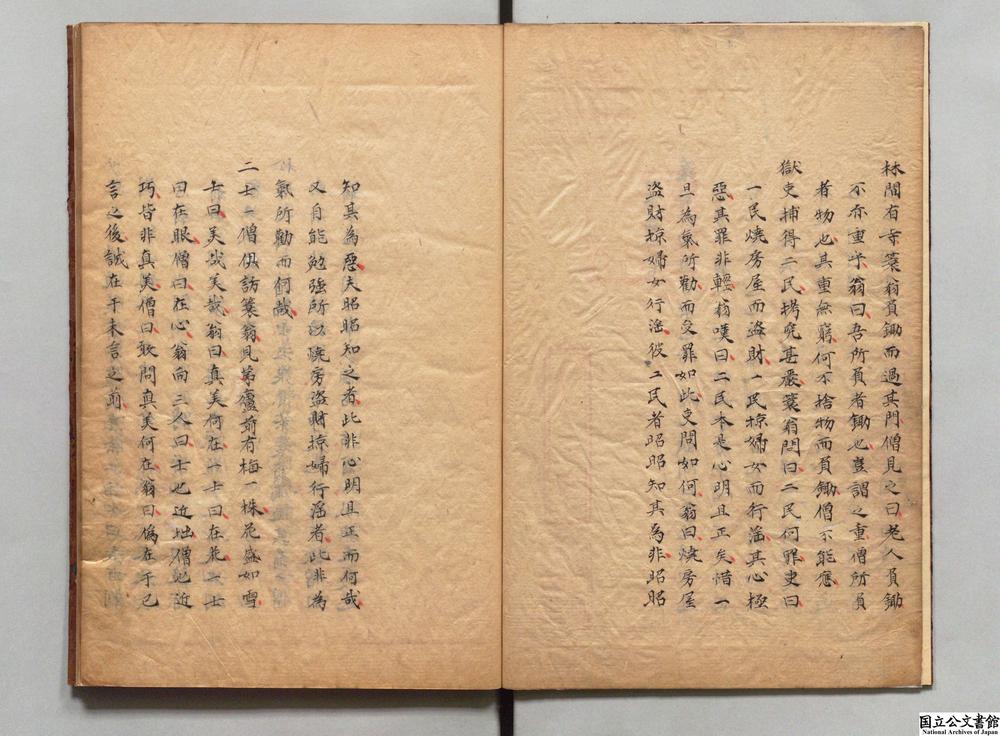 林間有寺簑翁負鋤而過其門僧見之曰老人負鋤
不亦重乎翁曰吾所負者鋤也豈謂之重僧所負
者物也其重無窮何不捨物而負鋤僧不能應
獄吏捕得二民拷究甚嚴簑翁問曰二民何罪吏曰
一民燒房屋而盜財一民掠婦女而行滛其心極
惡其罪非輕翁嘆曰二民本是心明且正矣惜一
旦為氣所勸而受罪如此吏問如何翁曰燒房屋
盜財掠婦女行滛彼二民者昭昭知其為非昭昭
知其為惡夫昭昭知之者此非心明且正而何哉
又自能勉強所以燒房盜財掠婦行滛者此非為
氣所勸而何哉
二士一僧俱訪簑翁見茅廬前有梅一株花盛如雪
士曰美哉美哉翁曰真美何在一士曰在花一士
曰在眼僧曰在心翁向三人曰士也近地僧也近
巧皆非真美僧曰敢問真美何在翁曰偽在于已
言之後誠在于未言之前
国立公文書館
National Archives of Japan